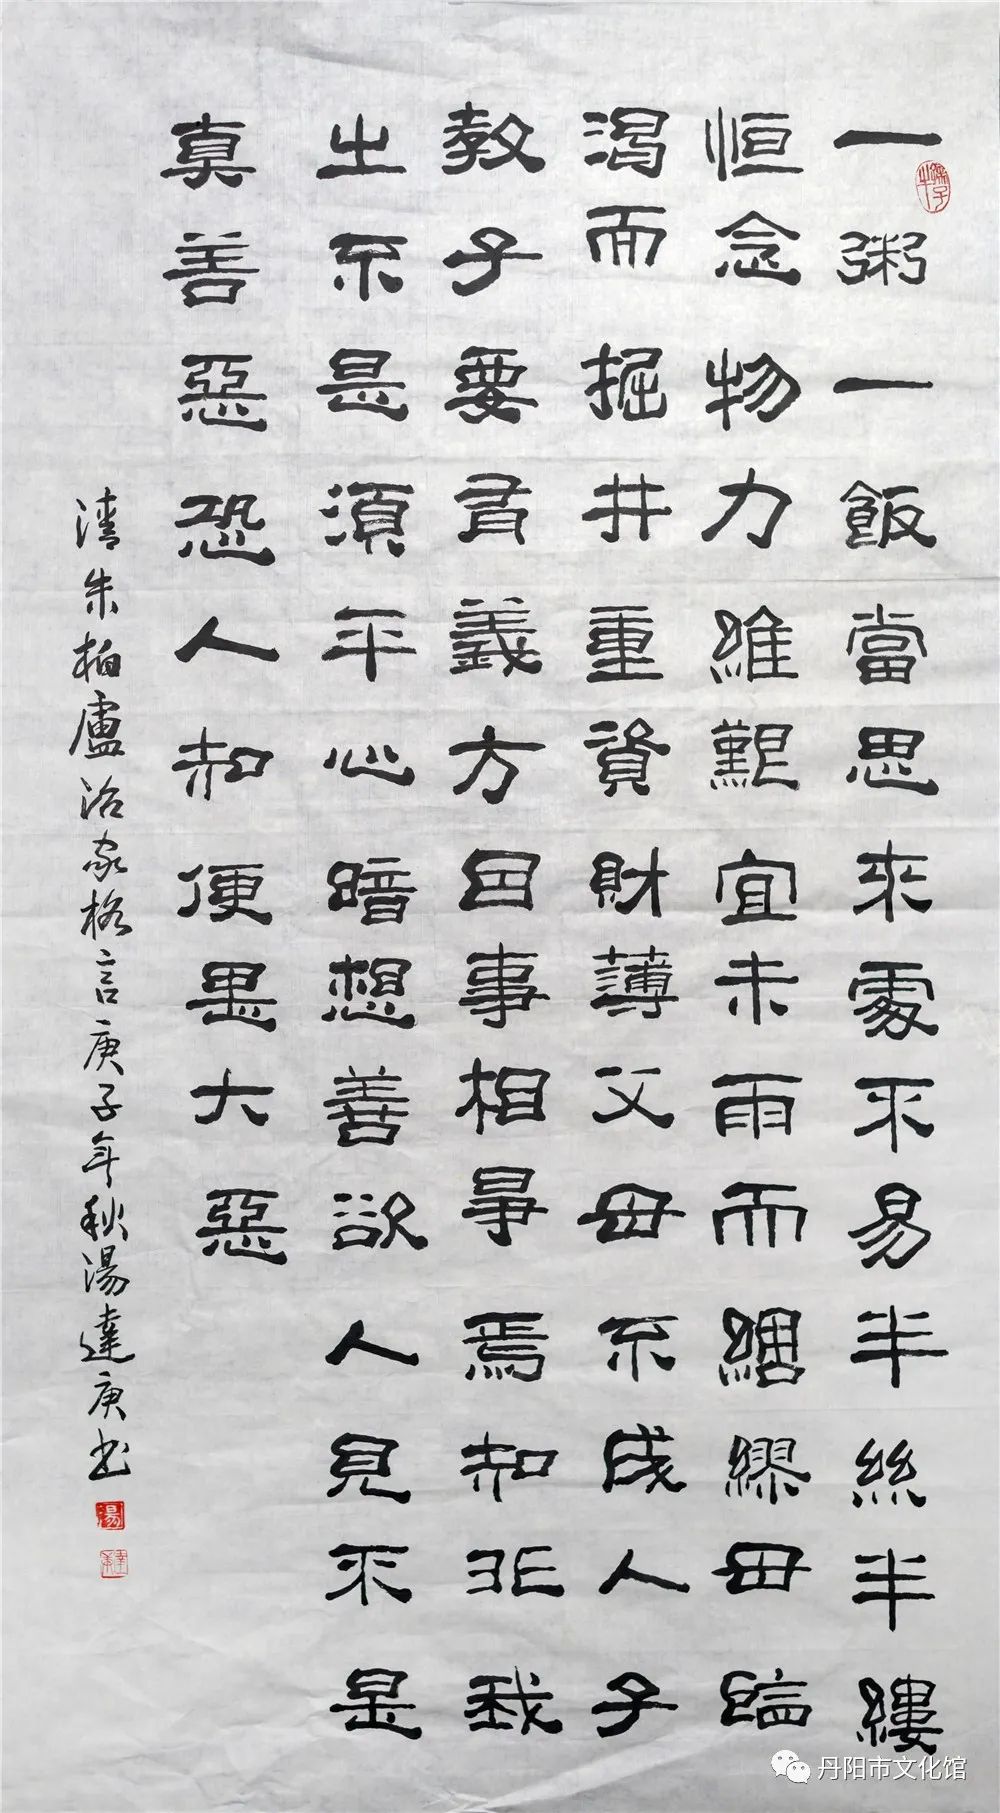 一粥一飯當思來處不易半絲半縷
恒念物力維艱宜未雨而綢繆毋臨
渴而掘井重資財薄父母不成人子
教子要有義方因事相爭焉知非我
之不是須平心暗想善欲人見不是
真善惡恐人知便是大惡
清朱柏廬治家格言庚子年秋湯達庚书
湯
孺子牛
丹阳市文化馆